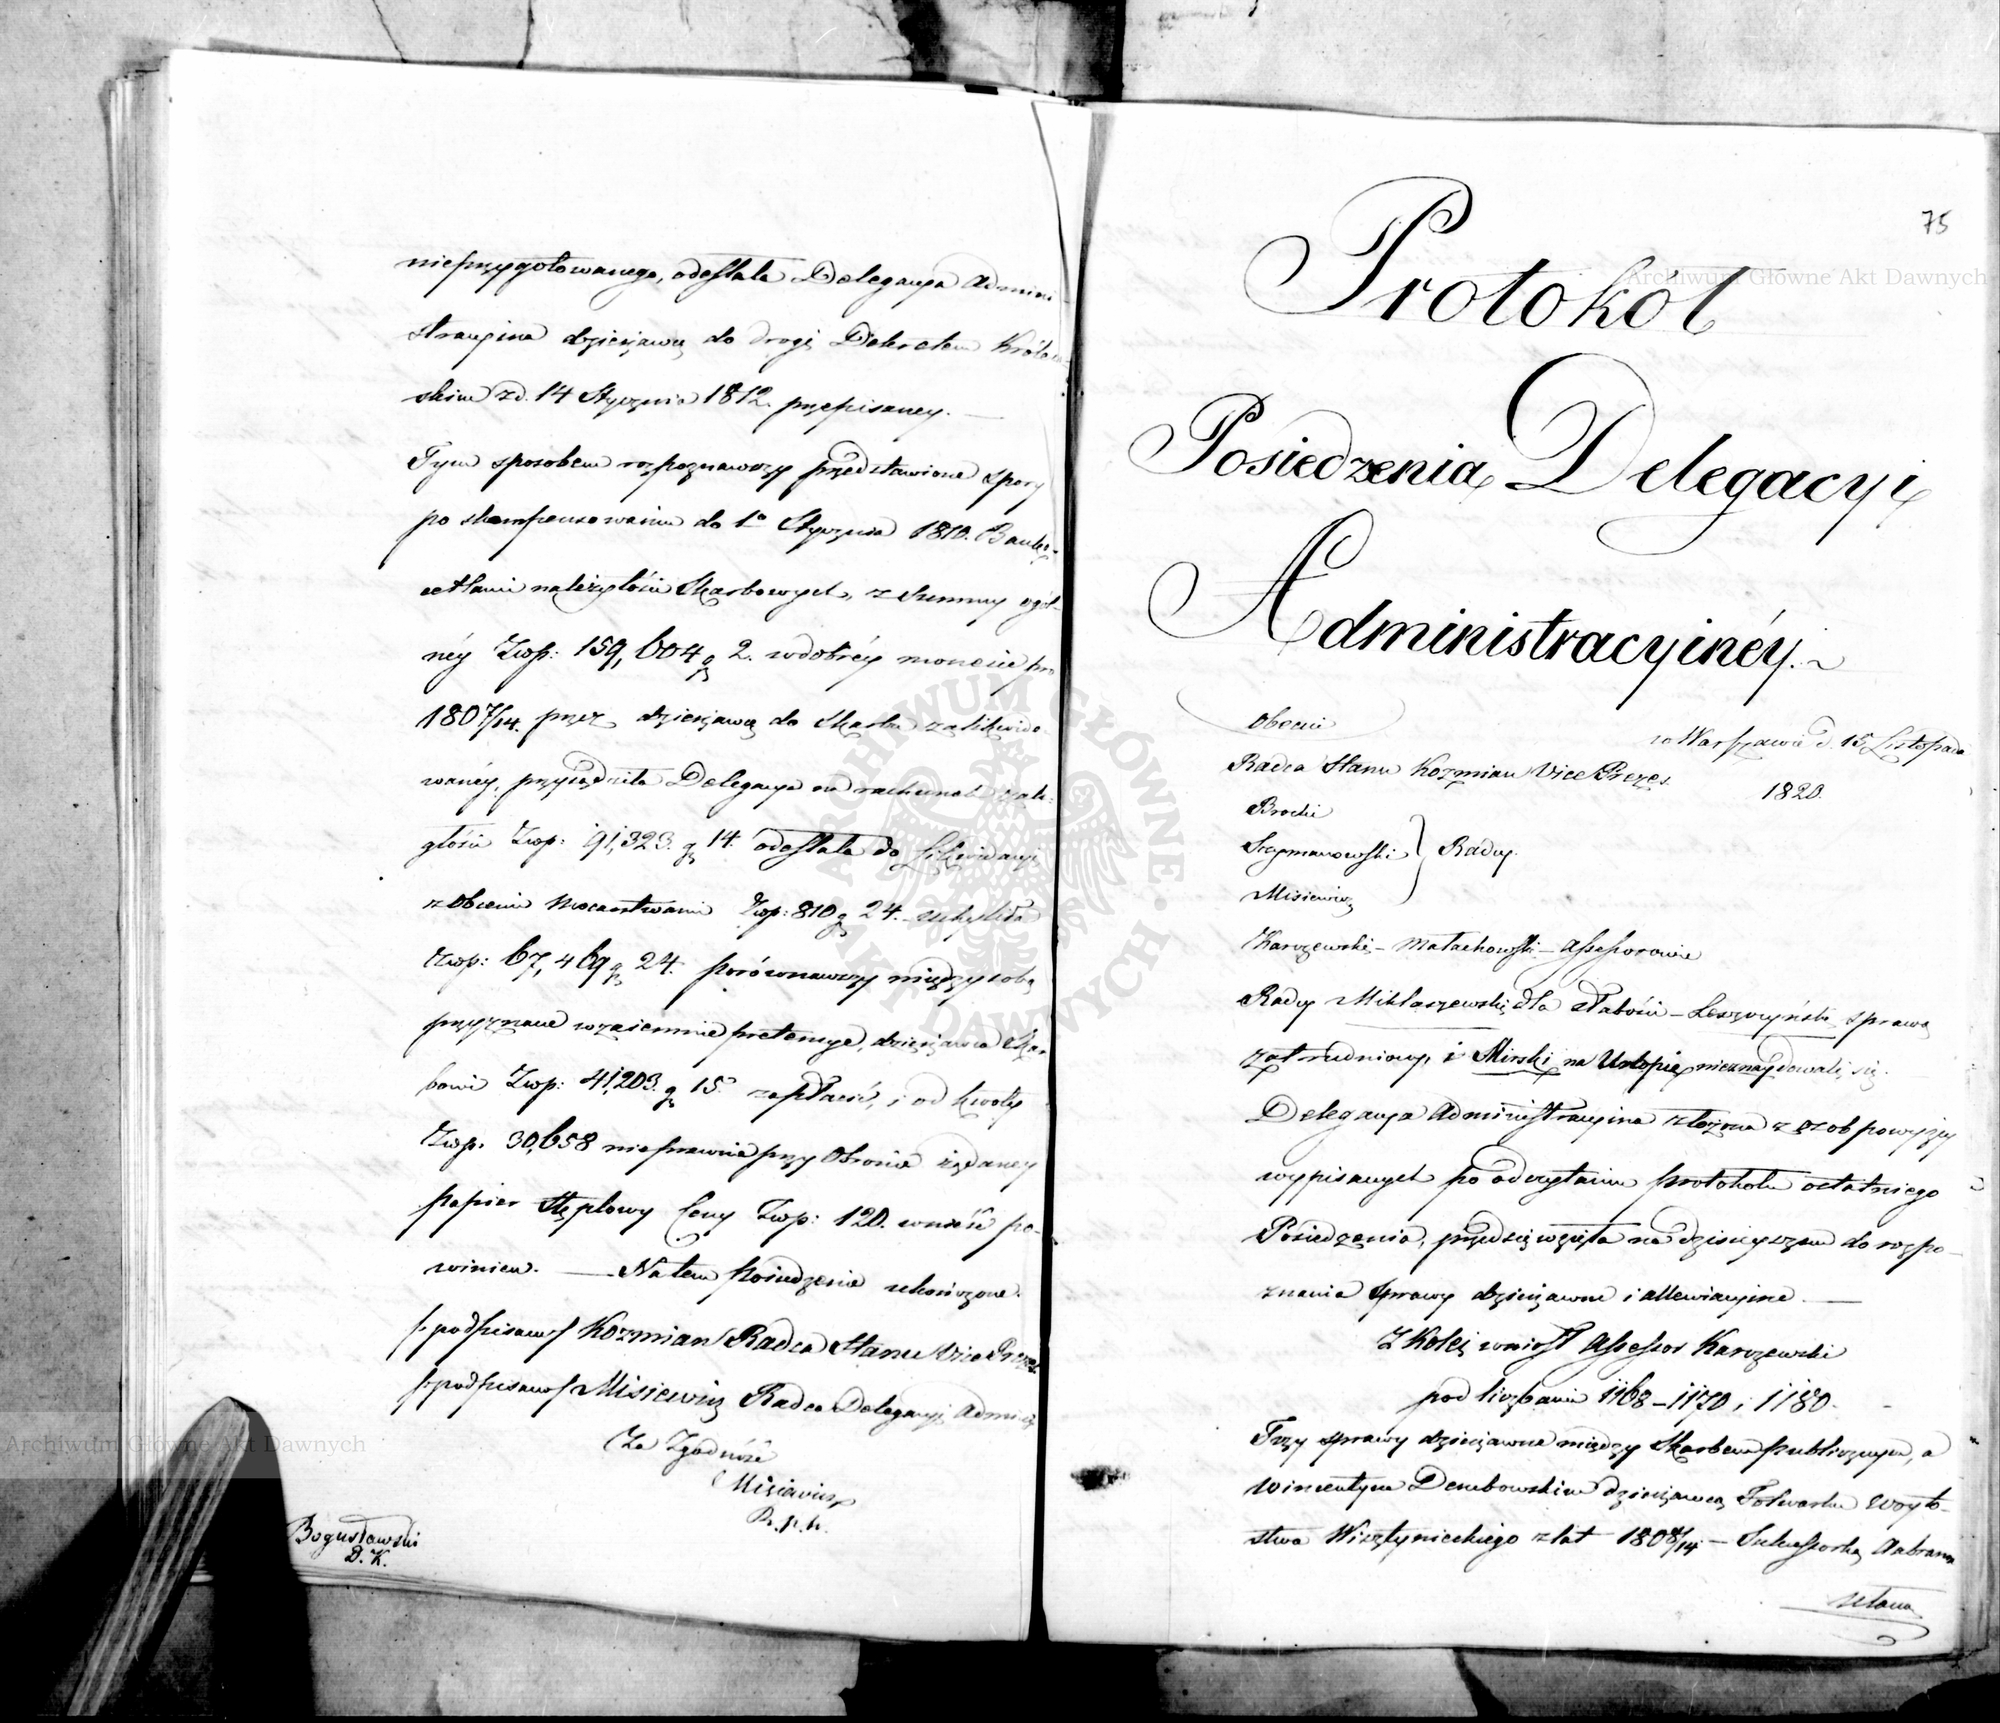 nieprzygotowanego, odesłała Delegacya Admini-
stracyina dzierżawcę do drogi Dekretem Królew-
skim z d. 14 Stycznia 1812. przepisaney. —
Tym sposobem rozpoznawszy przedstawione spory
po skompensowaniu do 1o Stycznia 1810.
należytości Skarbowych, z Summy ogól-
néy Zwp: 159,604 g 2. w dobréy monecie pro
1807/14. przez dzierżawcę do Skarbu zalikwido-
wanéy, przysądziła Delegacya na rachunek zale-
głości Zwp: 91,323. g 14. odesłała do Likwidacyi
z obcemi Mocarstwami Zwp: 810 g 24. uchyliła
Zwp: 67,469 g 24. porównawszy między sobą
przyznane wzaiemnie pretensye, dzierżawca Skar-
bowi Zwp: 41,203. g 15. zapłacić, i od kwoty
Zwp. 30,658 nieprawnie przy Obronie żądaney
papier Stęplowy Ceny Zwp: 120. wnieść po-
winien. — Na tem posiedzenie ukończone.
/: podpisano / Kozmian Radca Stanu Vice Prezes
/: podpisano / Misiewicz Radca Delegacyi Admin:
Za Zgodność
Misiewicz
R. p. k.
Bogusławski
D. K.
75
Protokół
Posiedzenia Delegacyi
Administracyinéy.
obecni
w Warszawie d. 15 Listopada
1820.
Radca Stanu Kozmian Vice Prezes.
Brocki
Szymanowski } Radcy.
Misiewicz
Karczewski – Małachowski – Assessorowie
Radcy Miklaszewski dla słabości – Leszczyński sprawą
zatrudniony, i Mirski na Urlopie nieznaydowali się.
Delegacya Administracyina złożona z osob powyżey
wypisanych po odczytaniu protokołu ostatniego
Posiedzenia, przedsięwzięła na dzisieyszem do rozpo-
znania sprawy dzierżawne i allewiacyine. —
Z Kolei wniosł Assessor Karczewski
pod liczbami 1168 – 1170 i 1180.
Trzy sprawy dzierżawne między Skarbem publicznym, a
Wincentym Dembowskim dzierżawcą Folwarku Woyto-
stwa Wisztynieckiego z lat 1808/14 – Sukcessorką Aabrama